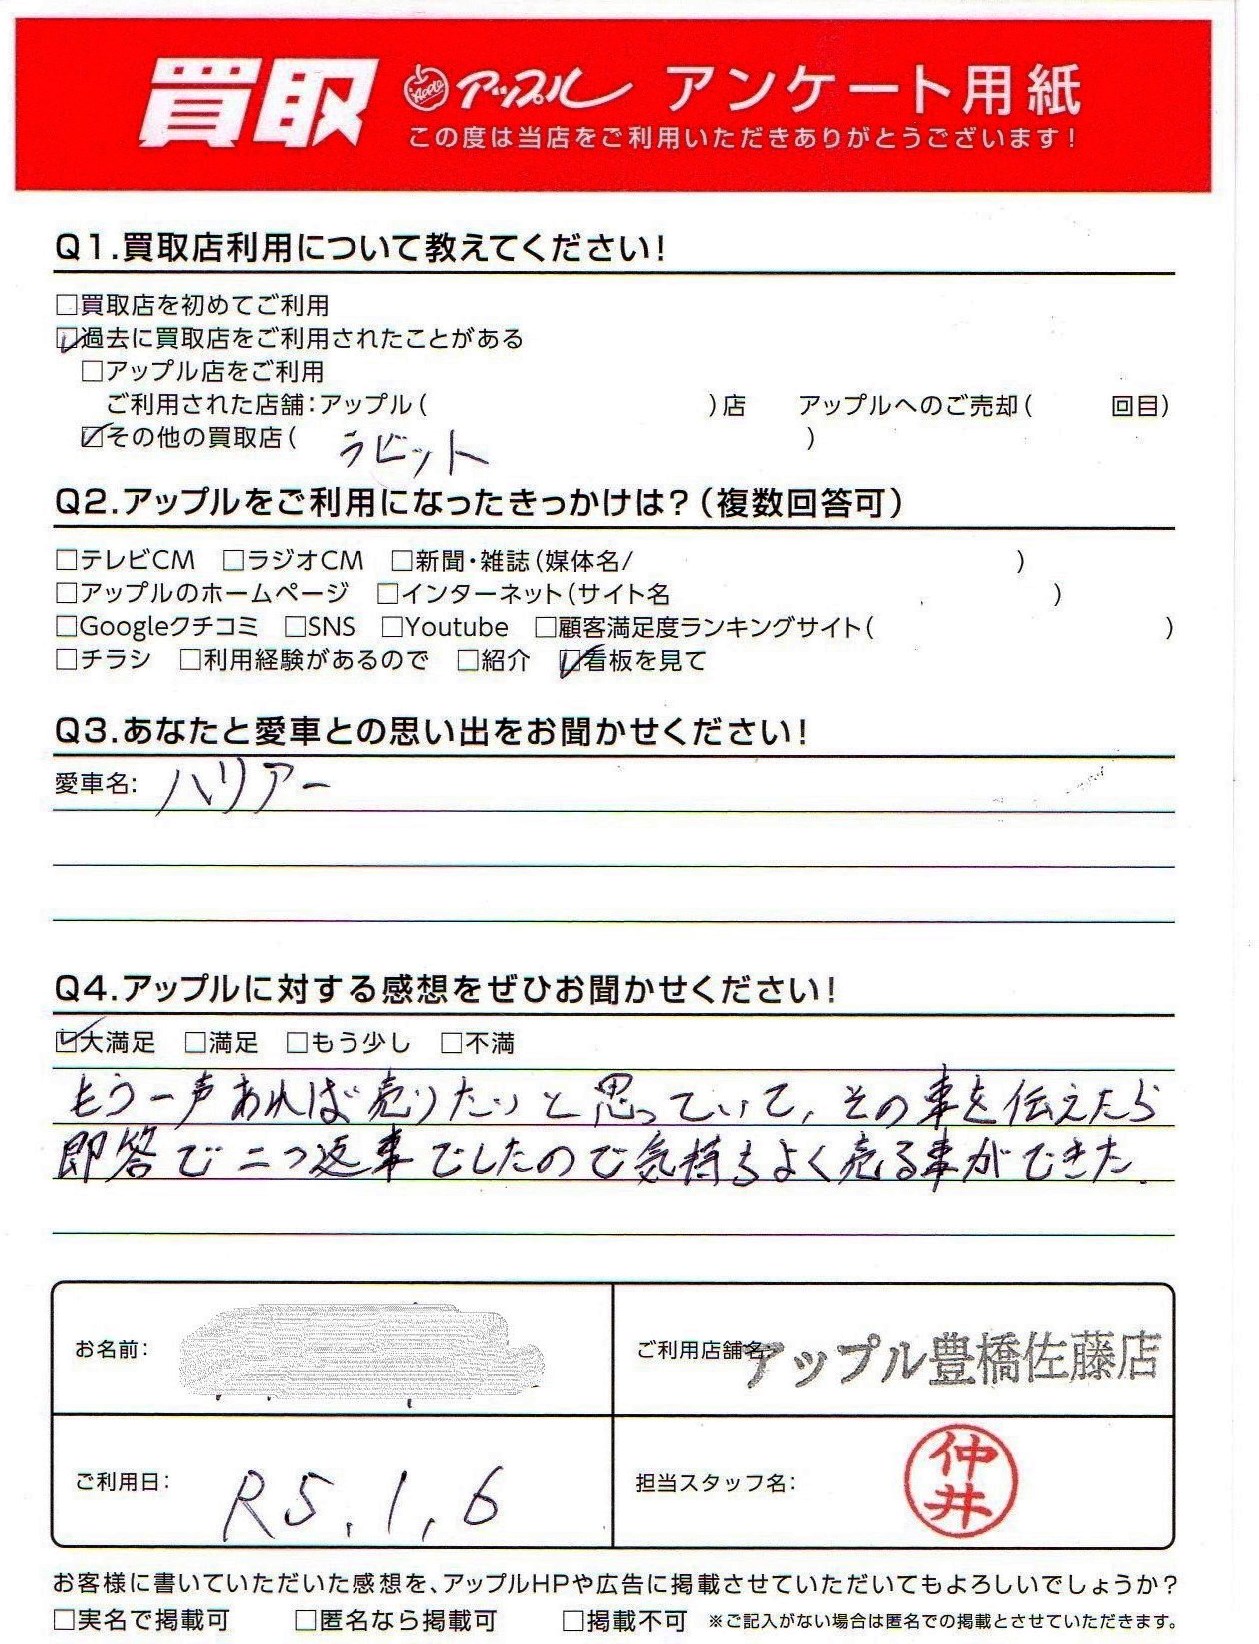 買取 Apple アップル アンケート用紙
この度は当店をご利用いただきありがとうございます！
Q1.買取店利用について教えてください！
□買取店を初めてご利用
☑過去に買取店をご利用されたことがある
□アップル店をご利用
ご利用された店舗：アップル（　　　）店　アップルへのご売却（　　　回目）
☑その他の買取店（ラビット）
Q2.アップルをご利用になったきっかけは？（複数回答可）
□テレビCM □ラジオCM □新聞・雑誌（媒体名/　　　）
□アップルのホームページ □インターネット（サイト名　　　）
□Googleクチコミ □SNS □Youtube □顧客満足度ランキングサイト（　　　）
□チラシ □利用経験があるので □紹介 ☑看板を見て
Q3.あなたと愛車との思い出をお聞かせください！
愛車名：ハリアー
Q4.アップルに対する感想をぜひお聞かせください！
☑大満足 □満足 □もう少し □不満
もう一声あれば売りたいと思っていて、その事を伝えたら
即答で二つ返事でしたので気持ちよく売る事ができた.
お名前：
ご利用店舗名：アップル豊橋佐藤店
ご利用日：R5.1.6
担当スタッフ名：仲井
お客様に書いていただいた感想を、アップルHPや広告に掲載させていただいてもよろしいでしょうか？
□実名で掲載可 □匿名なら掲載可 □掲載不可 ※ご記入がない場合は匿名での掲載とさせていただきます。